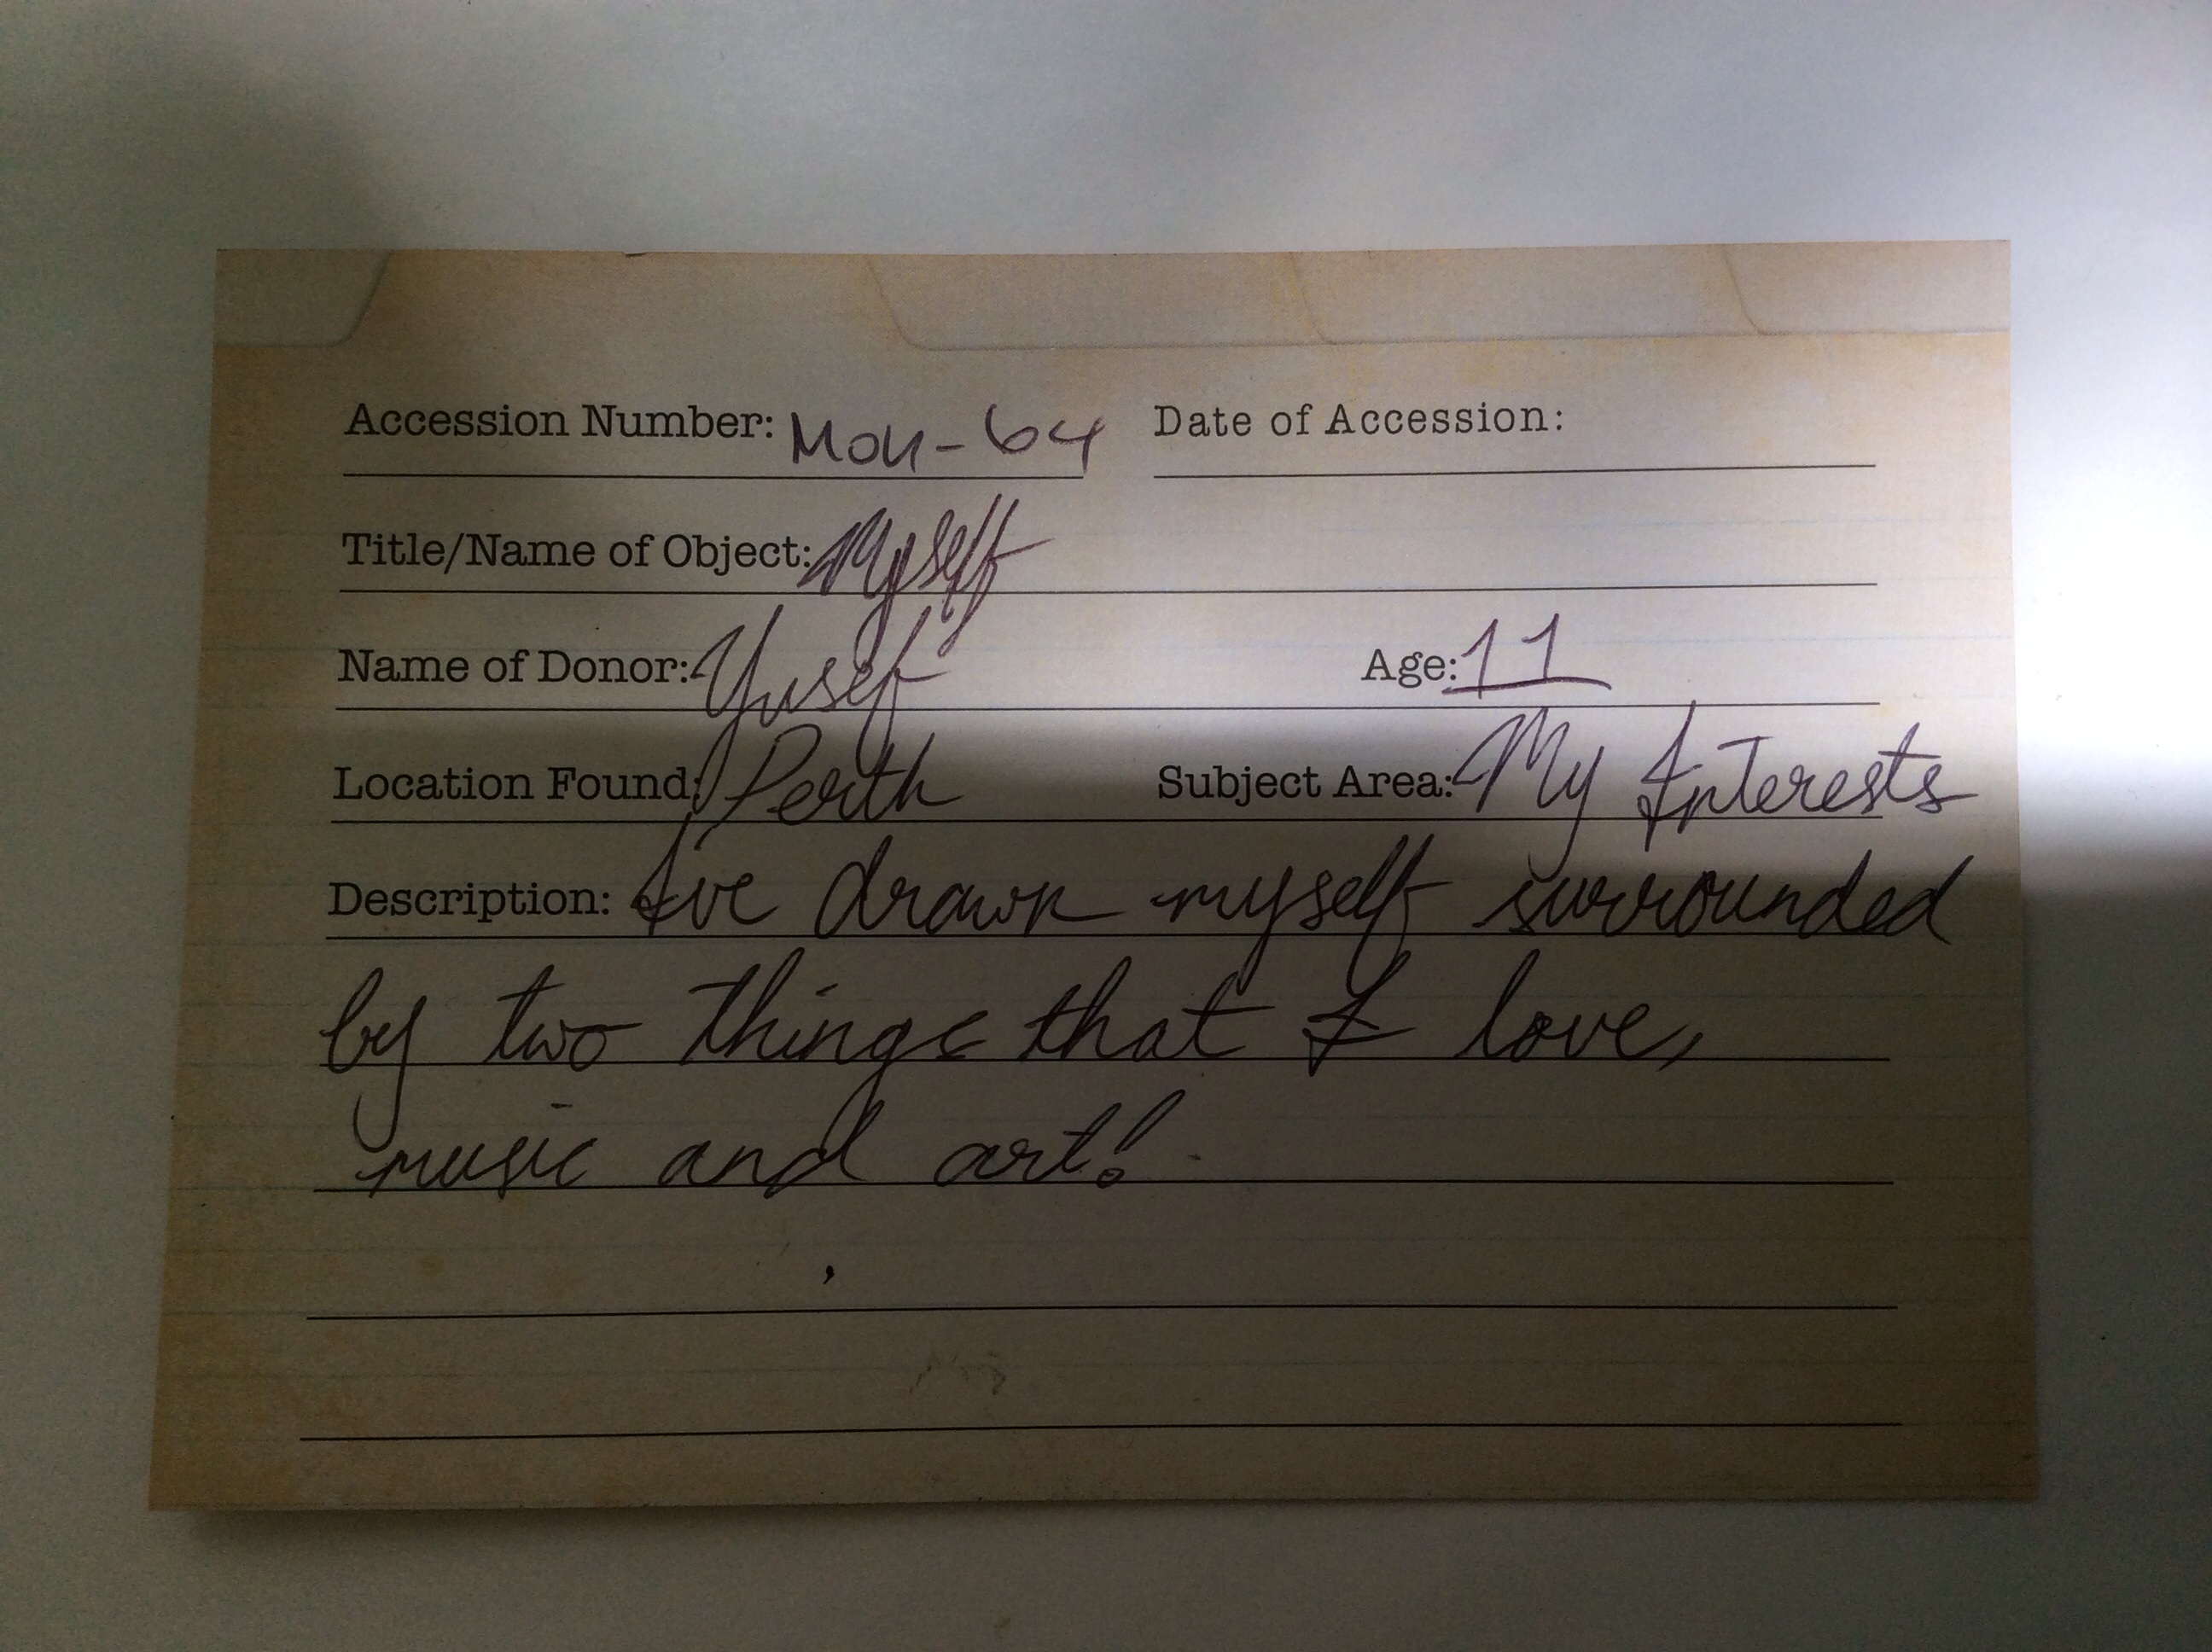 Accession Number: Mou-64 Date of Accession:
Title/Name of Object: Myself
Name of Donor: Yusef Age: 11
Location Found: Perth Subject Area: My Interests
Description: Ive drawn myself surrounded
by two things that I love,
music and art!